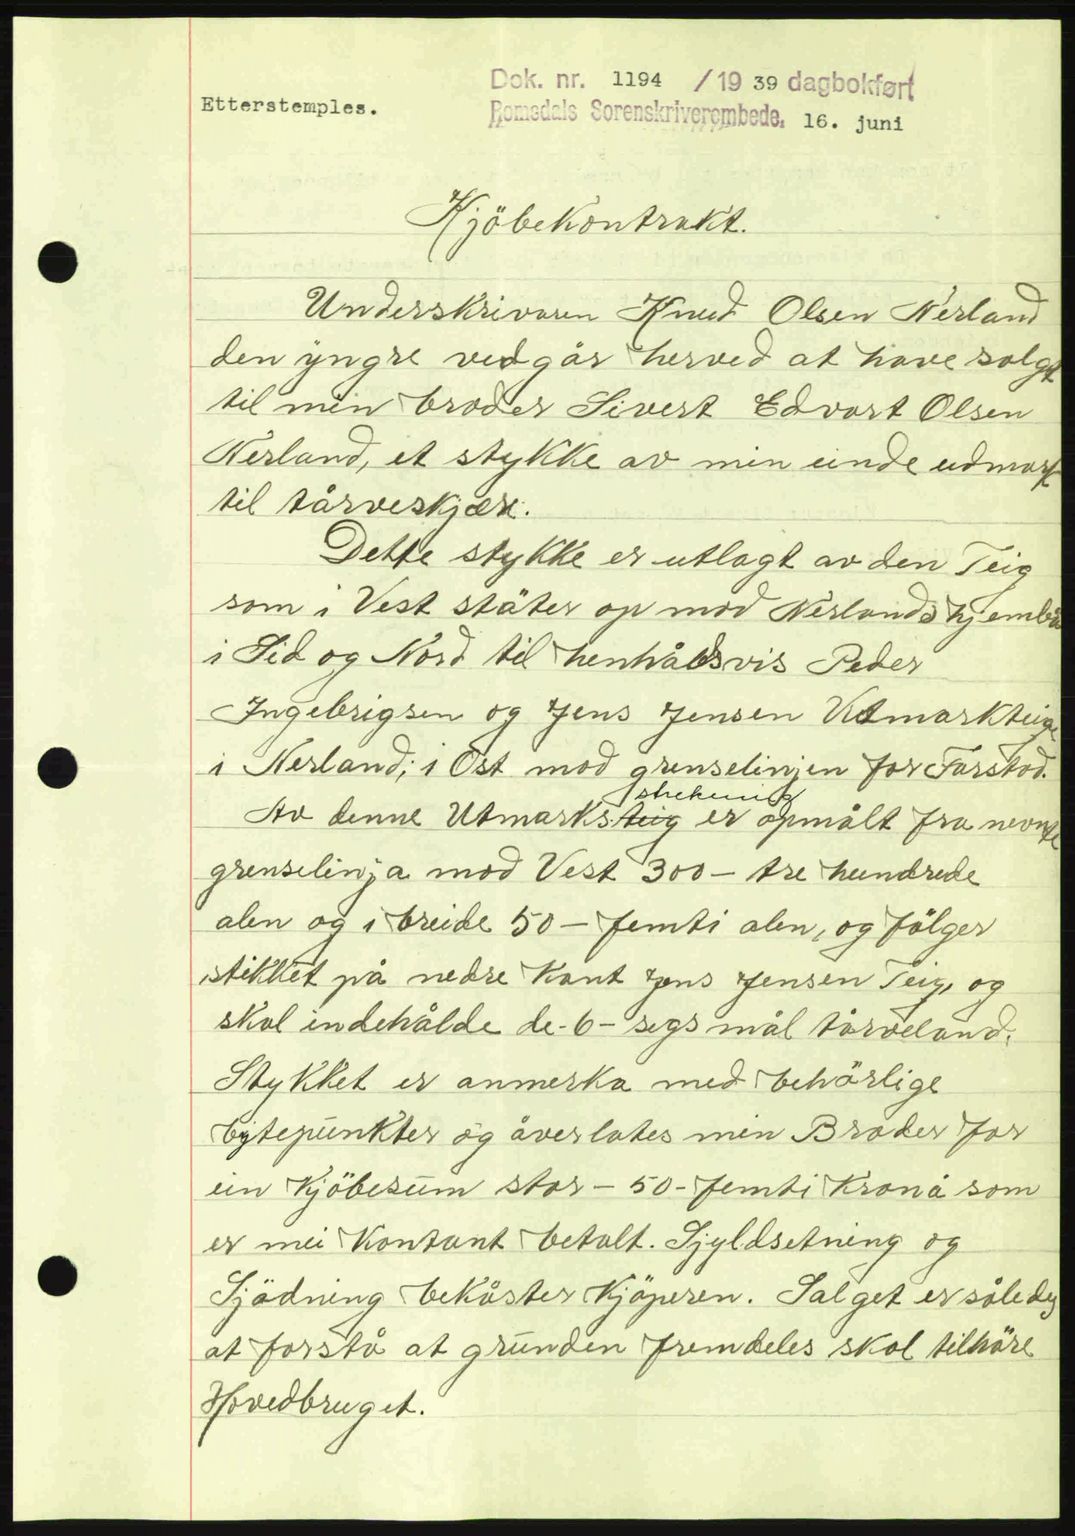 Dok. nr. 1194 / 19 39 dagbokført
Etterstemples.
Romsdals Sorenskriverembede. 16. juni
Kjöbekontrakt.
Underskrivaren Knud Olsen Nerland
den yngre vedgår herved at have solgt
til min broder Sivert Edvart Olsen
Nerland, et stykke av min einde udmark
til tårveskjær.
Dette stykke er utlagt av den Teig
som i Vest stäter op mod Nerlands hjembö
i Sid og Nord til henhåldsvis Peder
Ingebrigsen og Jens Jensen Utmarkteige
i Nerland; i Öst mod grenselinjen for Farstad.
strekning
Av denne Utmarks teig er opmålt fra nevnte
grenselinja mod Vest 300 - tre hundrede
alen og i breide 50 - femti alen, og fölger
stikket på nedre kant Jens Jensen Teig, og
skal indehålde de - 6 - segs mål tårveland.
Stykket er anmerka med behörlige
bytepunkter og åverlates min Broder for
ein kjöbesum stor - 50 - femti kronå som
er mei kontant betalt. Sjyldsetning og
Sjödning bekåster kjöperen. Salget er således
at forstå at grunden fremdeles skal tilhöre
Hovedbruget.